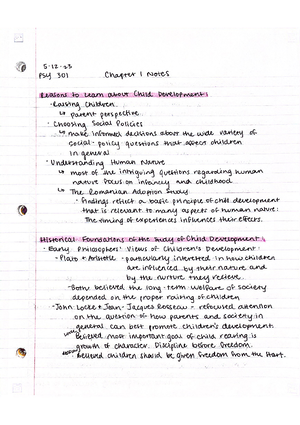 5-12-23
PSY 301 Chapter 1 Notes
Reasons to Learn about Child Development:
· Raising Children
↳ parent perspective
· Choosing Social Policies
↳ make informed decisions about the wide variety of
social-policy questions that affect children
in general
· Understanding Human Nature
↳ most of the intriguing questions regarding human
nature focus on infancy and childhood
↳ The Romanian Adoption Study
· findings reflect a basic principle of child development
that is relevant to many aspects of human nature:
The timing of experiences influences their effects.
Historical Foundations of the study of Child Development:
· Early Philosophers' Views of Children's Development
· Plato + Aristotle - particularly interested in how children
are influenced by their nature and
by the nurture they receive.
· Both believed the long-term welfare of society
depended on the proper raising of children
· John Locke + Jean-Jacques Rousseau - refocused attention
on the question of how parents and society in
general can best promote children's development.
believed most important goal of child rearing is
growth of character. Discipline before freedom.
believed children should be given freedom from the start.